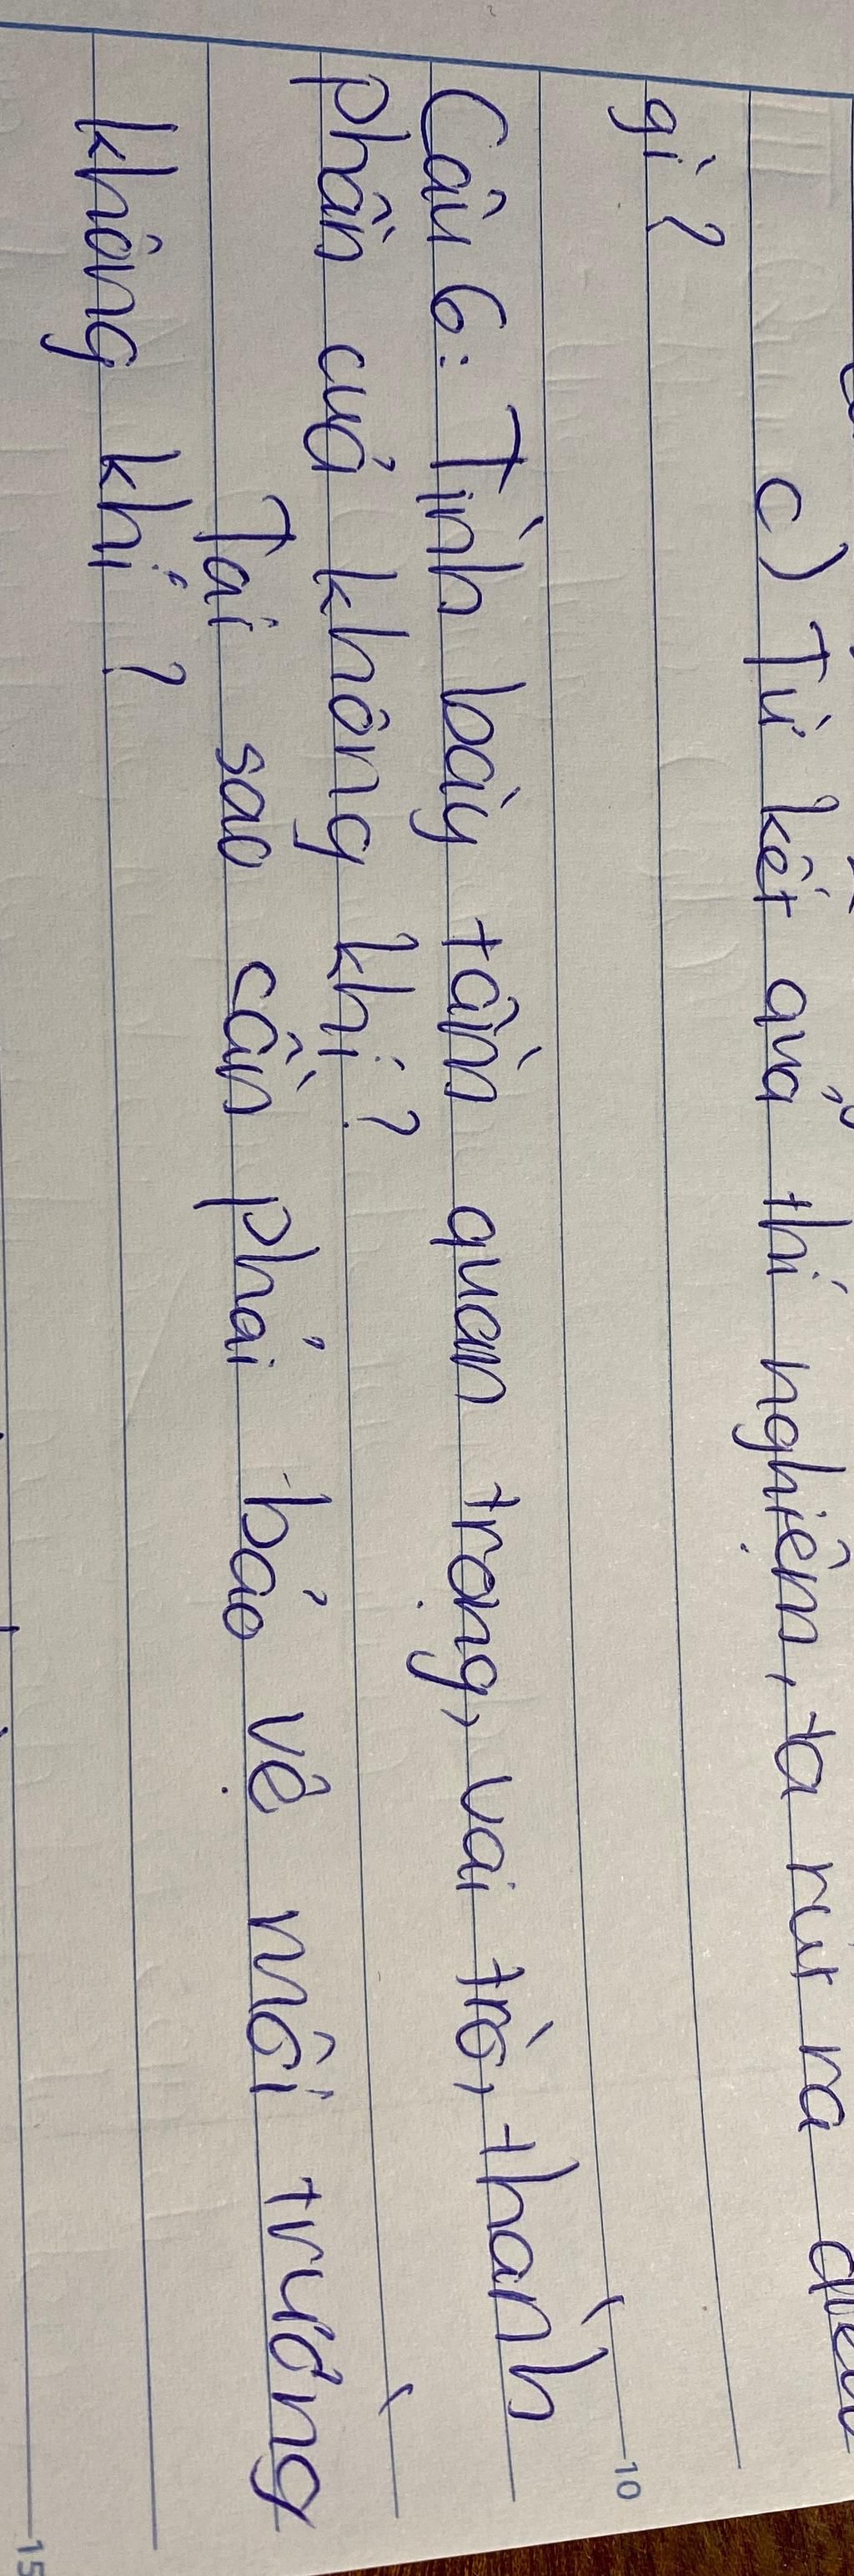 c) Từ kết quả thí nghiệm, ta rút ra điều
gì?
10
Câu 6: Tình bày tầm quan trọng, vai trò, thành
phần cuả không khí?
Tại sao cần phải bảo vệ môi trường
không khí?
15